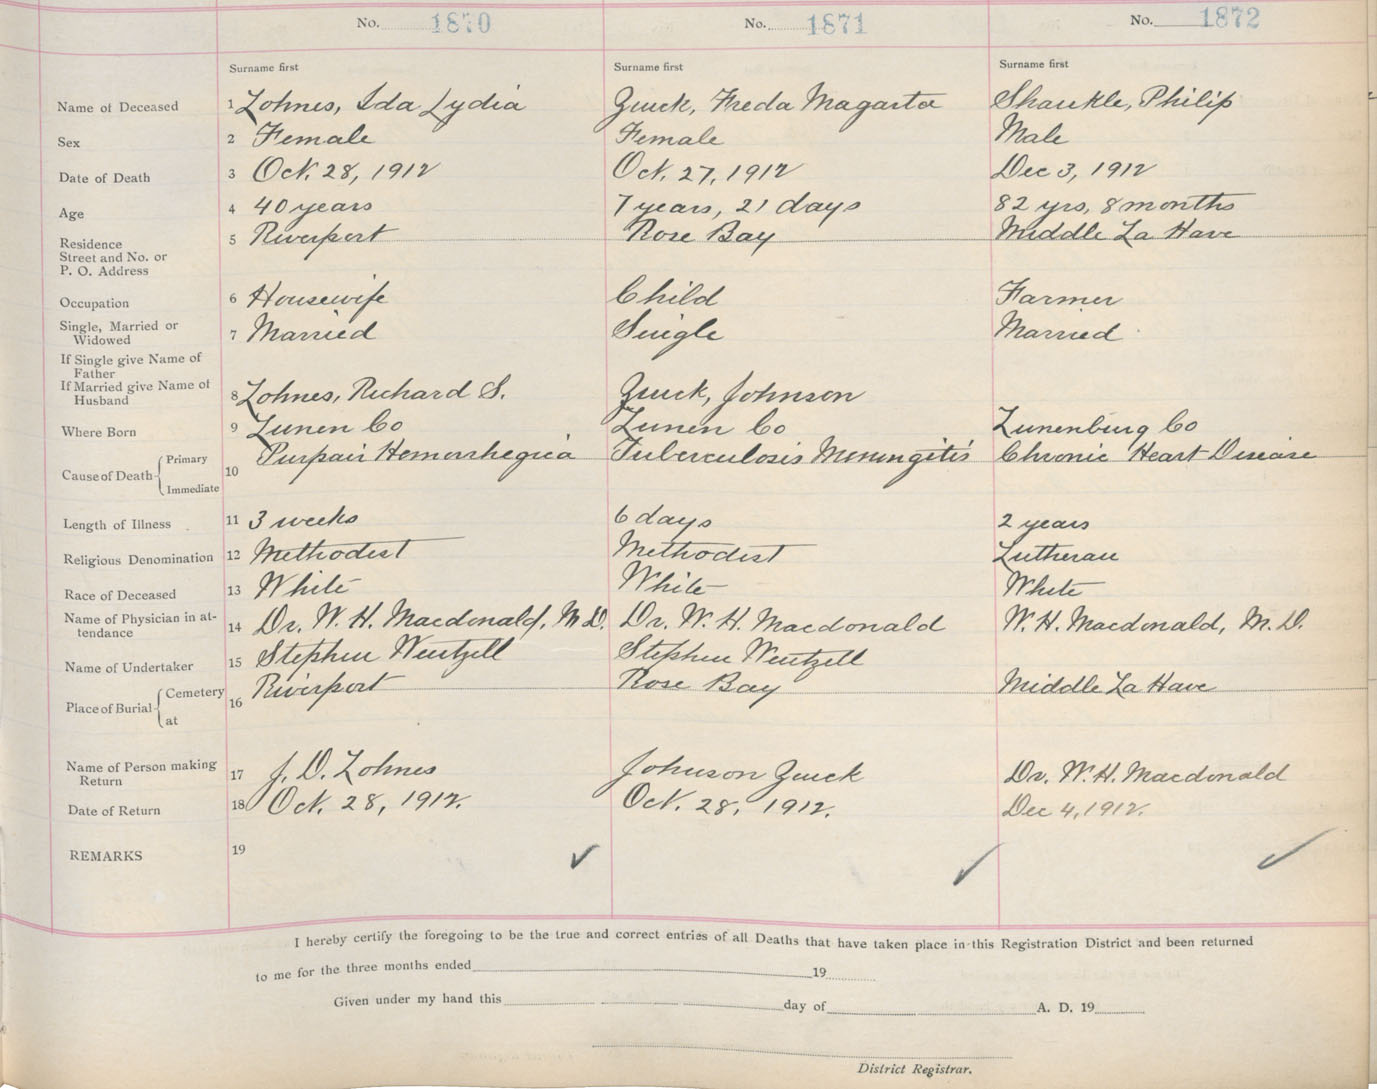 No. 1870 No. 1871 No. 1872
Surname first Surname first Surname first
Name of Deceased 1 Zohnes, Ida Lydia Zuick, Freda Magarta Shankle, Philip
Sex 2 Female Female Male
Date of Death 3 Oct. 28, 1912 Oct. 27, 1912 Dec 3, 1912
Age 4 40 years 7 years, 21 days 82 yrs, 8 months
Residence 5 Riverport Rose Bay Middle La Have
Street and No. or
P. O. Address
Occupation 6 Housewife Child Farmer
Single, Married or
Widowed 7 Married Single Married
If Single give Name of
Father
If Married give Name of
Husband 8 Zohnes, Richard S. Zuick, Johnson
Where Born 9 Lunen Co Lunen Co Lunenburg Co
Cause of Death Primary Purpair Hemorrhegica Tuberculosis Meningitis Chronic Heart Disease
10
Immediate
Length of Illness 11 3 weeks 6 days 2 years
Religious Denomination 12 Methodist Methodist Lutheran
Race of Deceased 13 White White White
Name of Physician in at-
tendance 14 Dr. W. H. Macdonald, M D. Dr. W. H. Macdonald W. H. Macdonald, M. D.
Name of Undertaker 15 Stephen Wentzell Stephen Wentzell
Place of Burial Cemetery 16 Riverport Rose Bay Middle La Have
at
Name of Person making
Return 17 J. D. Zohnes Johnson Zuick Dr. W. H. Macdonald
Date of Return 18 Oct. 28, 1912. Oct. 28, 1912. Dec 4, 1912.
REMARKS 19 ✓ ✓ ✓
I hereby certify the foregoing to be the true and correct entries of all Deaths that have taken place in this Registration District and been returned
to me for the three months ended 19
Given under my hand this day of A. D. 19
District Registrar.